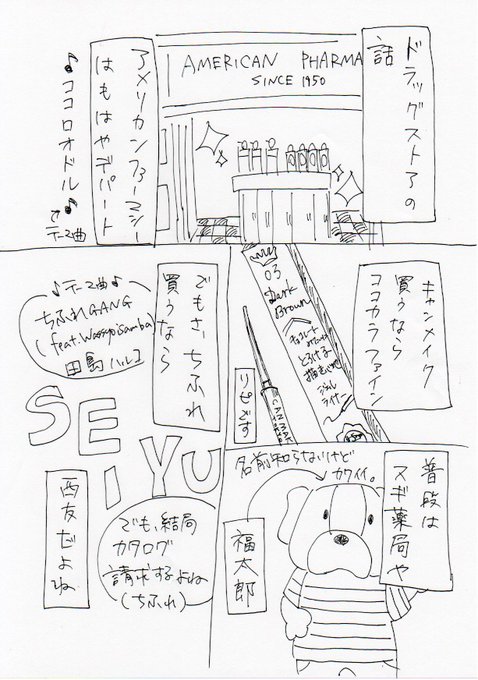 ドラッグストアの
話
AMERICAN PHARMA
SINCE 1950
アメリカンファーマシー
はもはやデパート
♪ココロオドル♪
テーマ曲
キャンメイク
買うなら
ココカラファイン
03
Dark
Brown
チョコレート
とろける
描き心地
ジェル
ライナー
CANMAKE
リピです
でもさ、ちふれ
買うなら
♪テーマ曲♪
ちふれGANG
(feat.Wassyoisamba)
田島ハルコ
SEIYU
でも、結局
カタログ
請求するよね
(ちふれ)
西友だよね
普段は
スギ薬局や
名前知らないけど
カワイイ。
福太郎